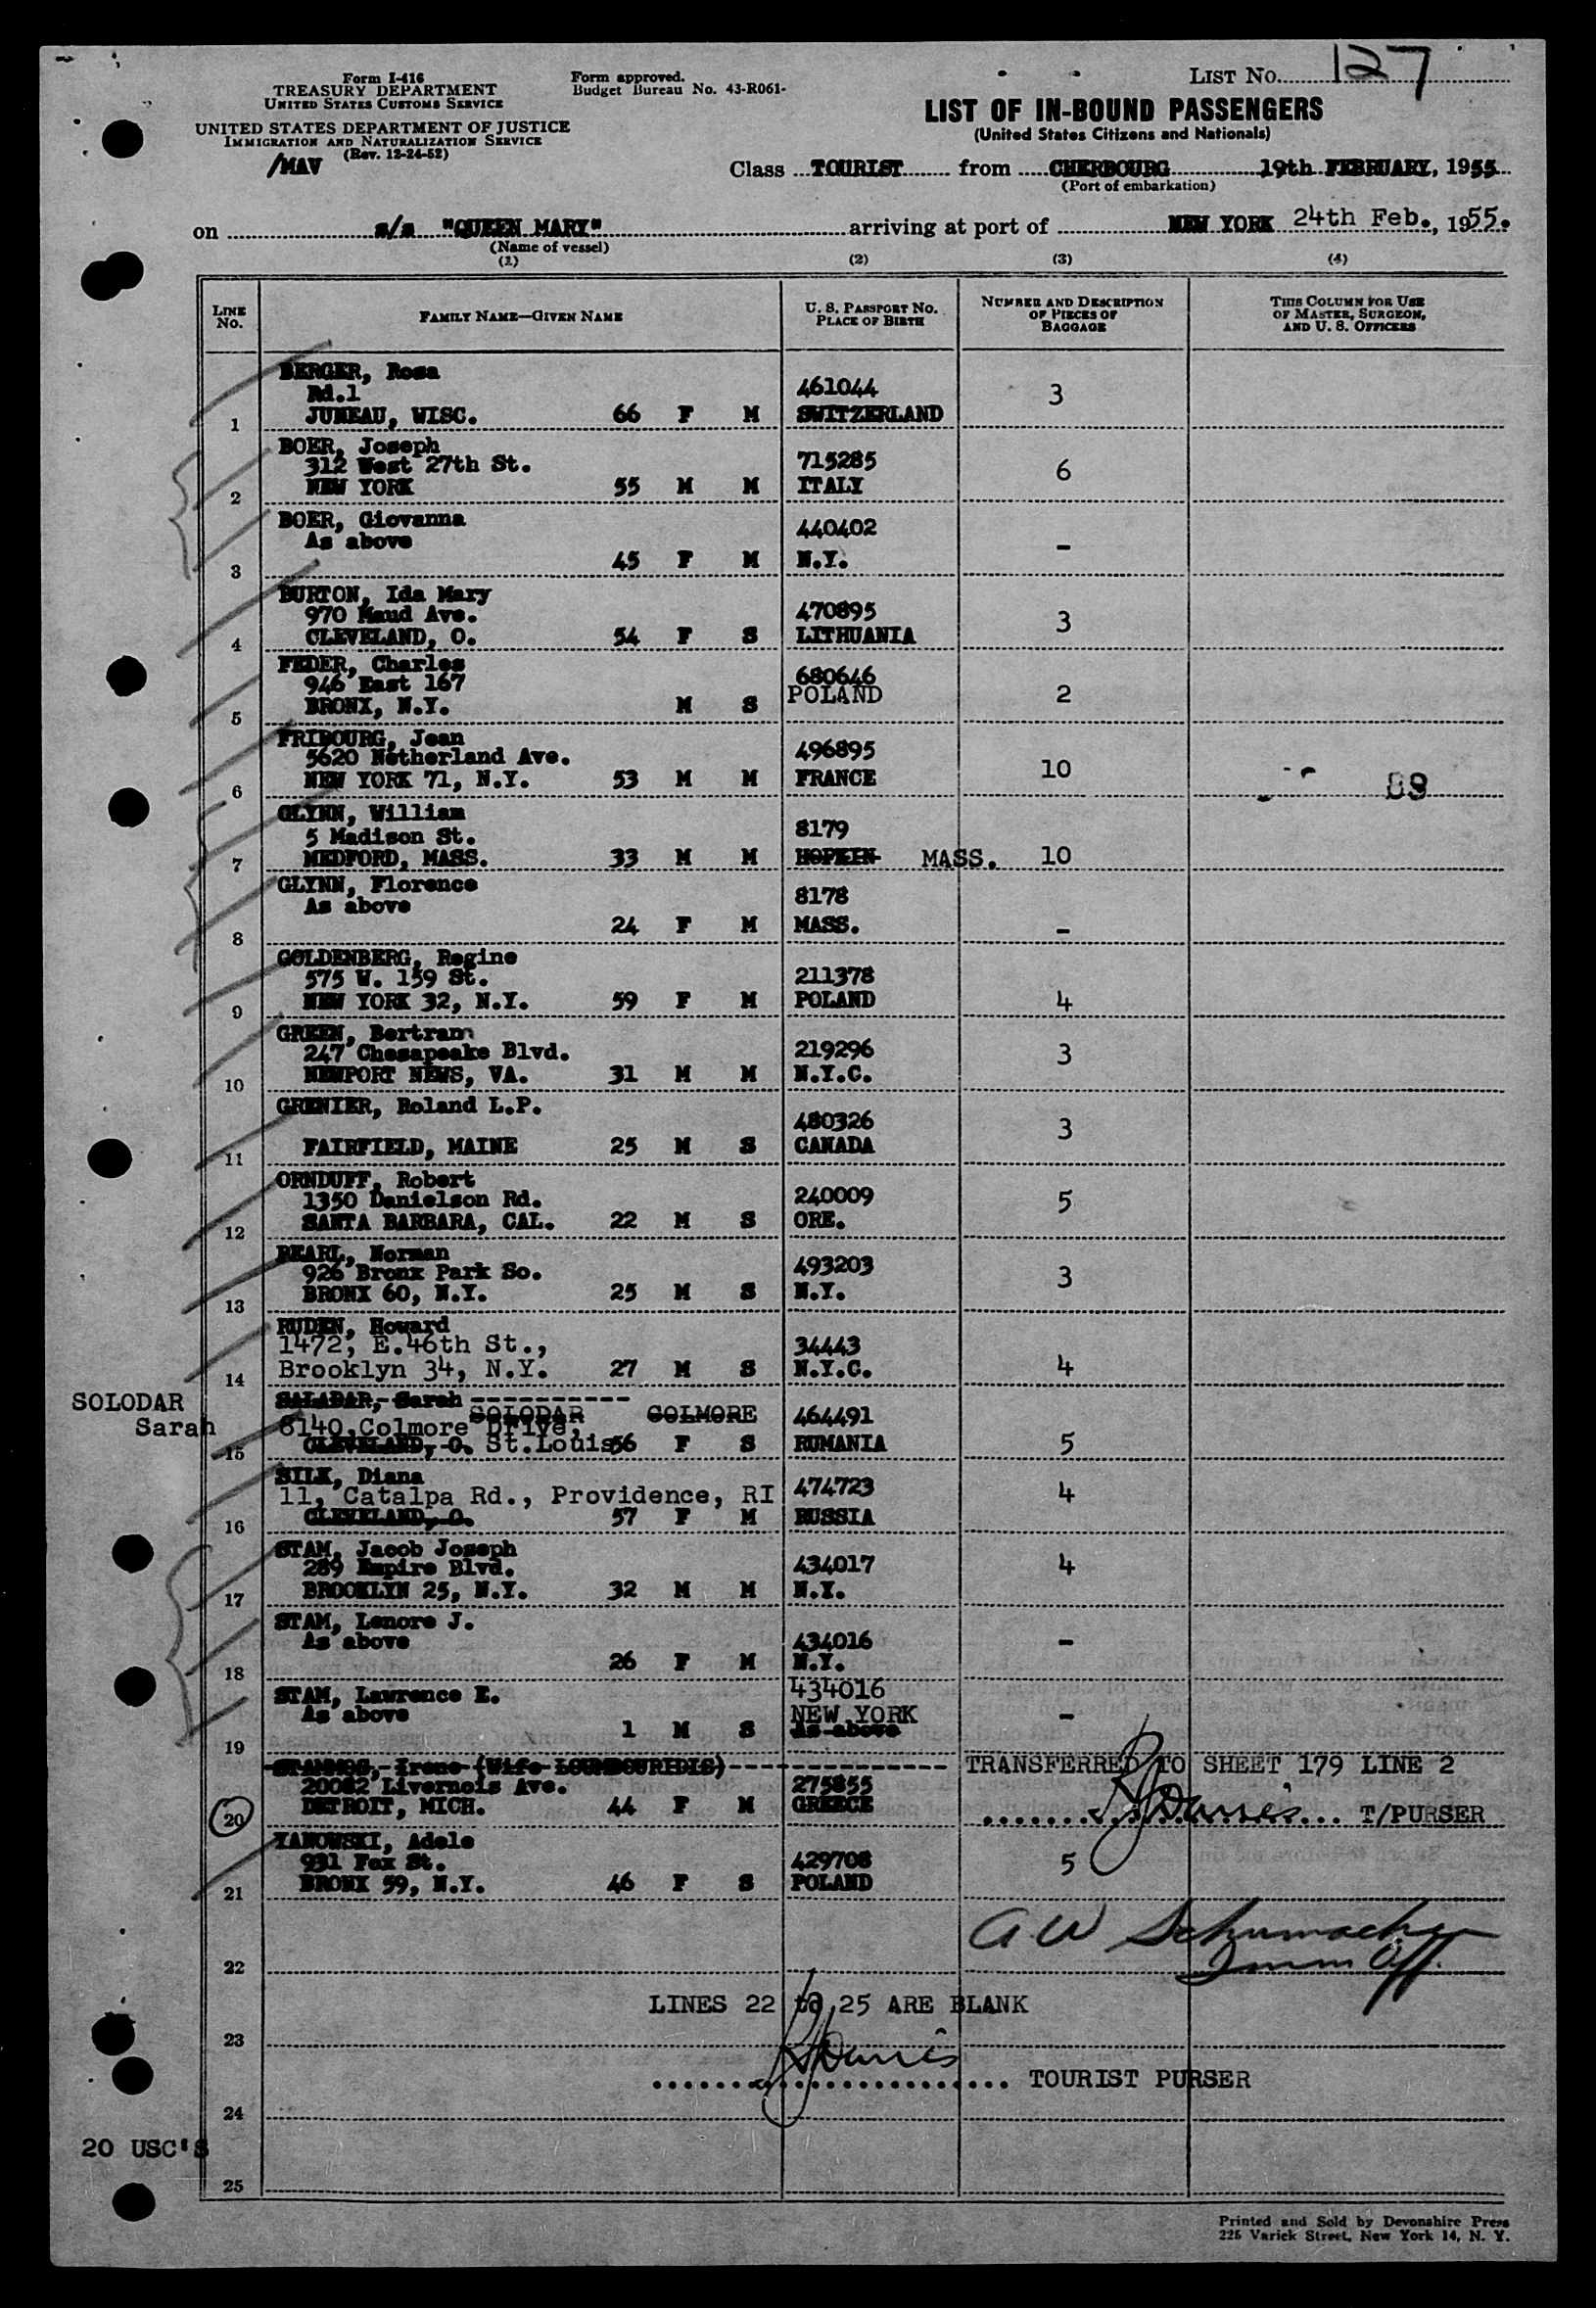 Form I-416
TREASURY DEPARTMENT
UNITED STATES CUSTOMS SERVICE
UNITED STATES DEPARTMENT OF JUSTICE
IMMIGRATION AND NATURALIZATION SERVICE
(Rev. 12-24-52)
/MAV
Form approved.
Budget Bureau No. 43-R061-
LIST No. 127
LIST OF IN-BOUND PASSENGERS
(United States Citizens and Nationals)
Class TOURIST from CHERBOURG 19th FEBRUARY, 1955
(Port of embarkation)
on s/s "QUEEN MARY" arriving at port of NEW YORK 24th Feb., 1955.
(Name of vessel)
(1) (2) (3) (4)
LINE No. FAMILY NAME—GIVEN NAME U. S. PASSPORT No. PLACE OF BIRTH NUMBER AND DESCRIPTION OF PIECES OF BAGGAGE THIS COLUMN FOR USE OF MASTER, SURGEON, AND U. S. OFFICERS
BERGER, Rosa
Rd.1 461044 3
1 JUNEAU, WISC. 66 F M SWITZERLAND
BOER, Joseph
312 West 27th St. 715285 6
2 NEW YORK 55 M M ITALY
BOER, Giovanna
As above 440402 -
3 45 F M N.Y.
BURTON, Ida Mary
970 Maud Ave. 470895 3
4 CLEVELAND, O. 54 F S LITHUANIA
FEDER, Charles
946 East 167 680646
POLAND 2
5 BRONX, N.Y. M S
FRIBOURG, Jean
5620 Netherland Ave. 496895 10
6 NEW YORK 71, N.Y. 53 M M FRANCE 89
GLYNN, William
5 Madison St. 8179
7 MEDFORD, MASS. 33 M M HOPKIN MASS. 10
GLYNN, Florence
As above 8178
8 24 F M MASS. -
GOLDENBERG, Regine
575 W. 159 St. 211378
9 NEW YORK 32, N.Y. 59 F M POLAND 4
GREEN, Bertram
247 Chesapeake Blvd. 219296 3
10 NEWPORT NEWS, VA. 31 M M N.Y.C.
GRENIER, Roland L.P.
480326 3
11 FAIRFIELD, MAINE 25 M S CANADA
ORNDUFF, Robert
1350 Danielson Rd. 240009 5
12 SANTA BARBARA, CAL. 22 M S ORE.
PEARL, Norman
926 Bronx Park So. 493203 3
13 BRONX 60, N.Y. 25 M S N.Y.
RUDEN, Howard
1472, E.46th St., 34443
14 Brooklyn 34, N.Y. 27 M S N.Y.C. 4
SOLODAR
Sarah
SALADAR, Sarah
SOLODAR COLMORE
8140 Colmore Drive, 464491
15 CLEVELAND, O. St.Louis 56 F S RUMANIA 5
SILK, Diana
11, Catalpa Rd., Providence, RI 474723 4
16 CLEVELAND, O. 57 F M RUSSIA
STAM, Jacob Joseph
289 Empire Blvd. 434017 4
17 BROOKLYN 25, N.Y. 32 M M N.Y.
STAM, Lenore J.
As above 434016 -
18 26 F M N.Y.
STAM, Lawrence E. 434016
As above NEW YORK -
19 1 M S As above
STAMMOS, Irene (Wife LOUMBOURIDIS) TRANSFERRED TO SHEET 179 LINE 2
20082 Livernois Ave. 275855
20 DETROIT, MICH. 44 F M GREECE T/PURSER
YANOWSKI, Adele
931 Fox St. 429708 5
21 BRONX 59, N.Y. 46 F S POLAND
A W Schumacher
Imm Off.
22
LINES 22 to 25 ARE BLANK
23
TOURIST PURSER
24
20 USC'S
25
Printed and Sold by Devonshire Press
225 Varick Street, New York 14, N. Y.